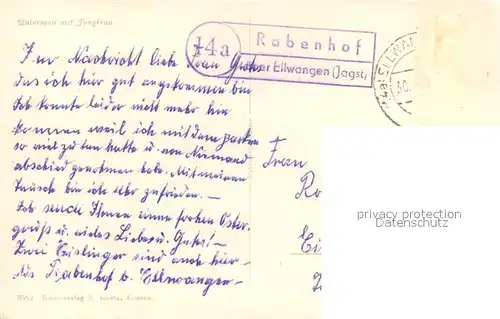 Unterseen mit Jungfrau
14a
Rabenhof
über Ellwangen (Jagst)
Zur Nachricht liebe Frau
das ich hier gut angekommen bin
Ich konnte leider nicht mehr hin
kommen weil ich mit dem packen
so viel zu tun hatte u. von Niemand
abschied genommen habe. Mit meinen
Tausch bin ich sehr zufrieden. –
Ich sende Ihnen einen frohen Oster-
gruß u. vieles Liebe u. Gute! –
Zwei Eislinger sind auch hier. –
Rabenhof b. Ellwangen –
Frau
Ro
Ei
privacy protection
Datenschutz
Kunstverlag